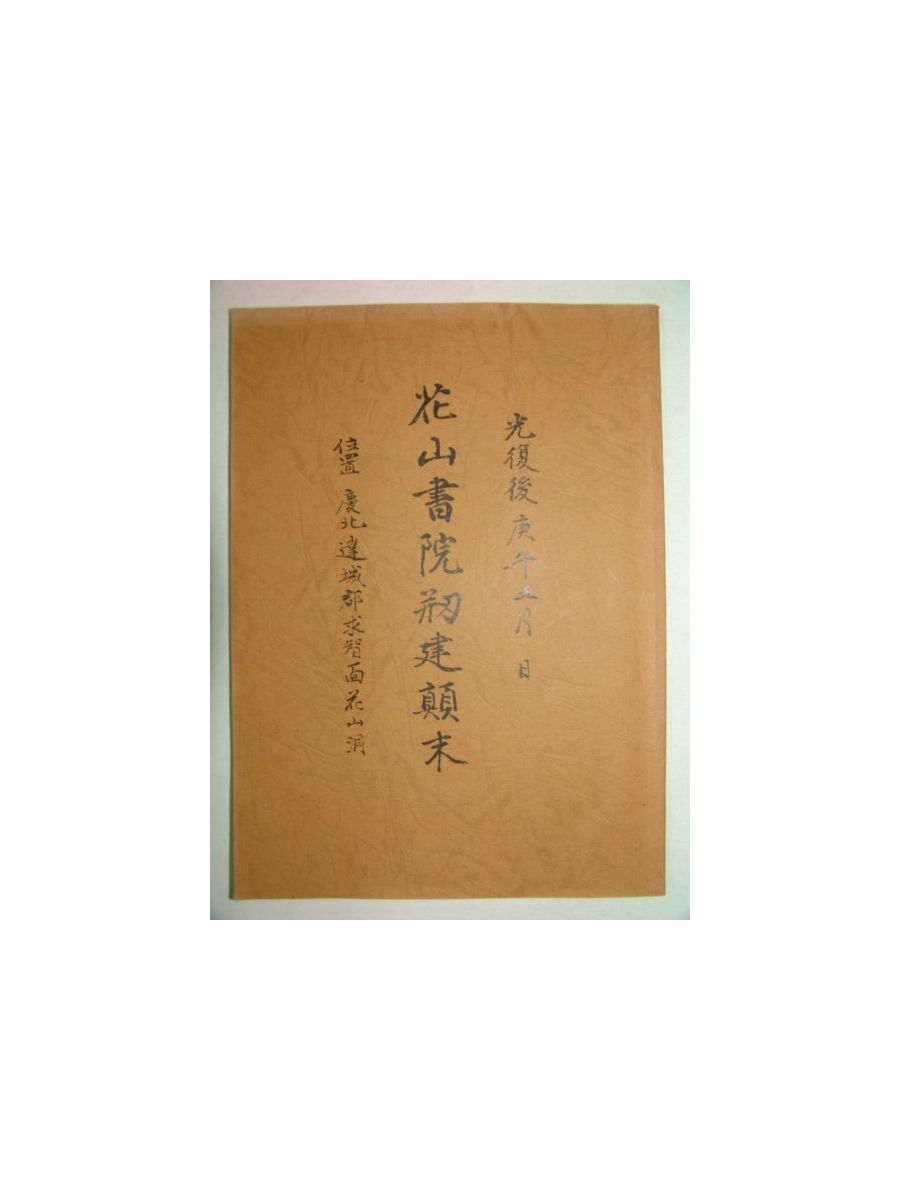 光復後庚午五月 日
花山書院刱建顚末
位置 慶北達城郡求智面花山洞